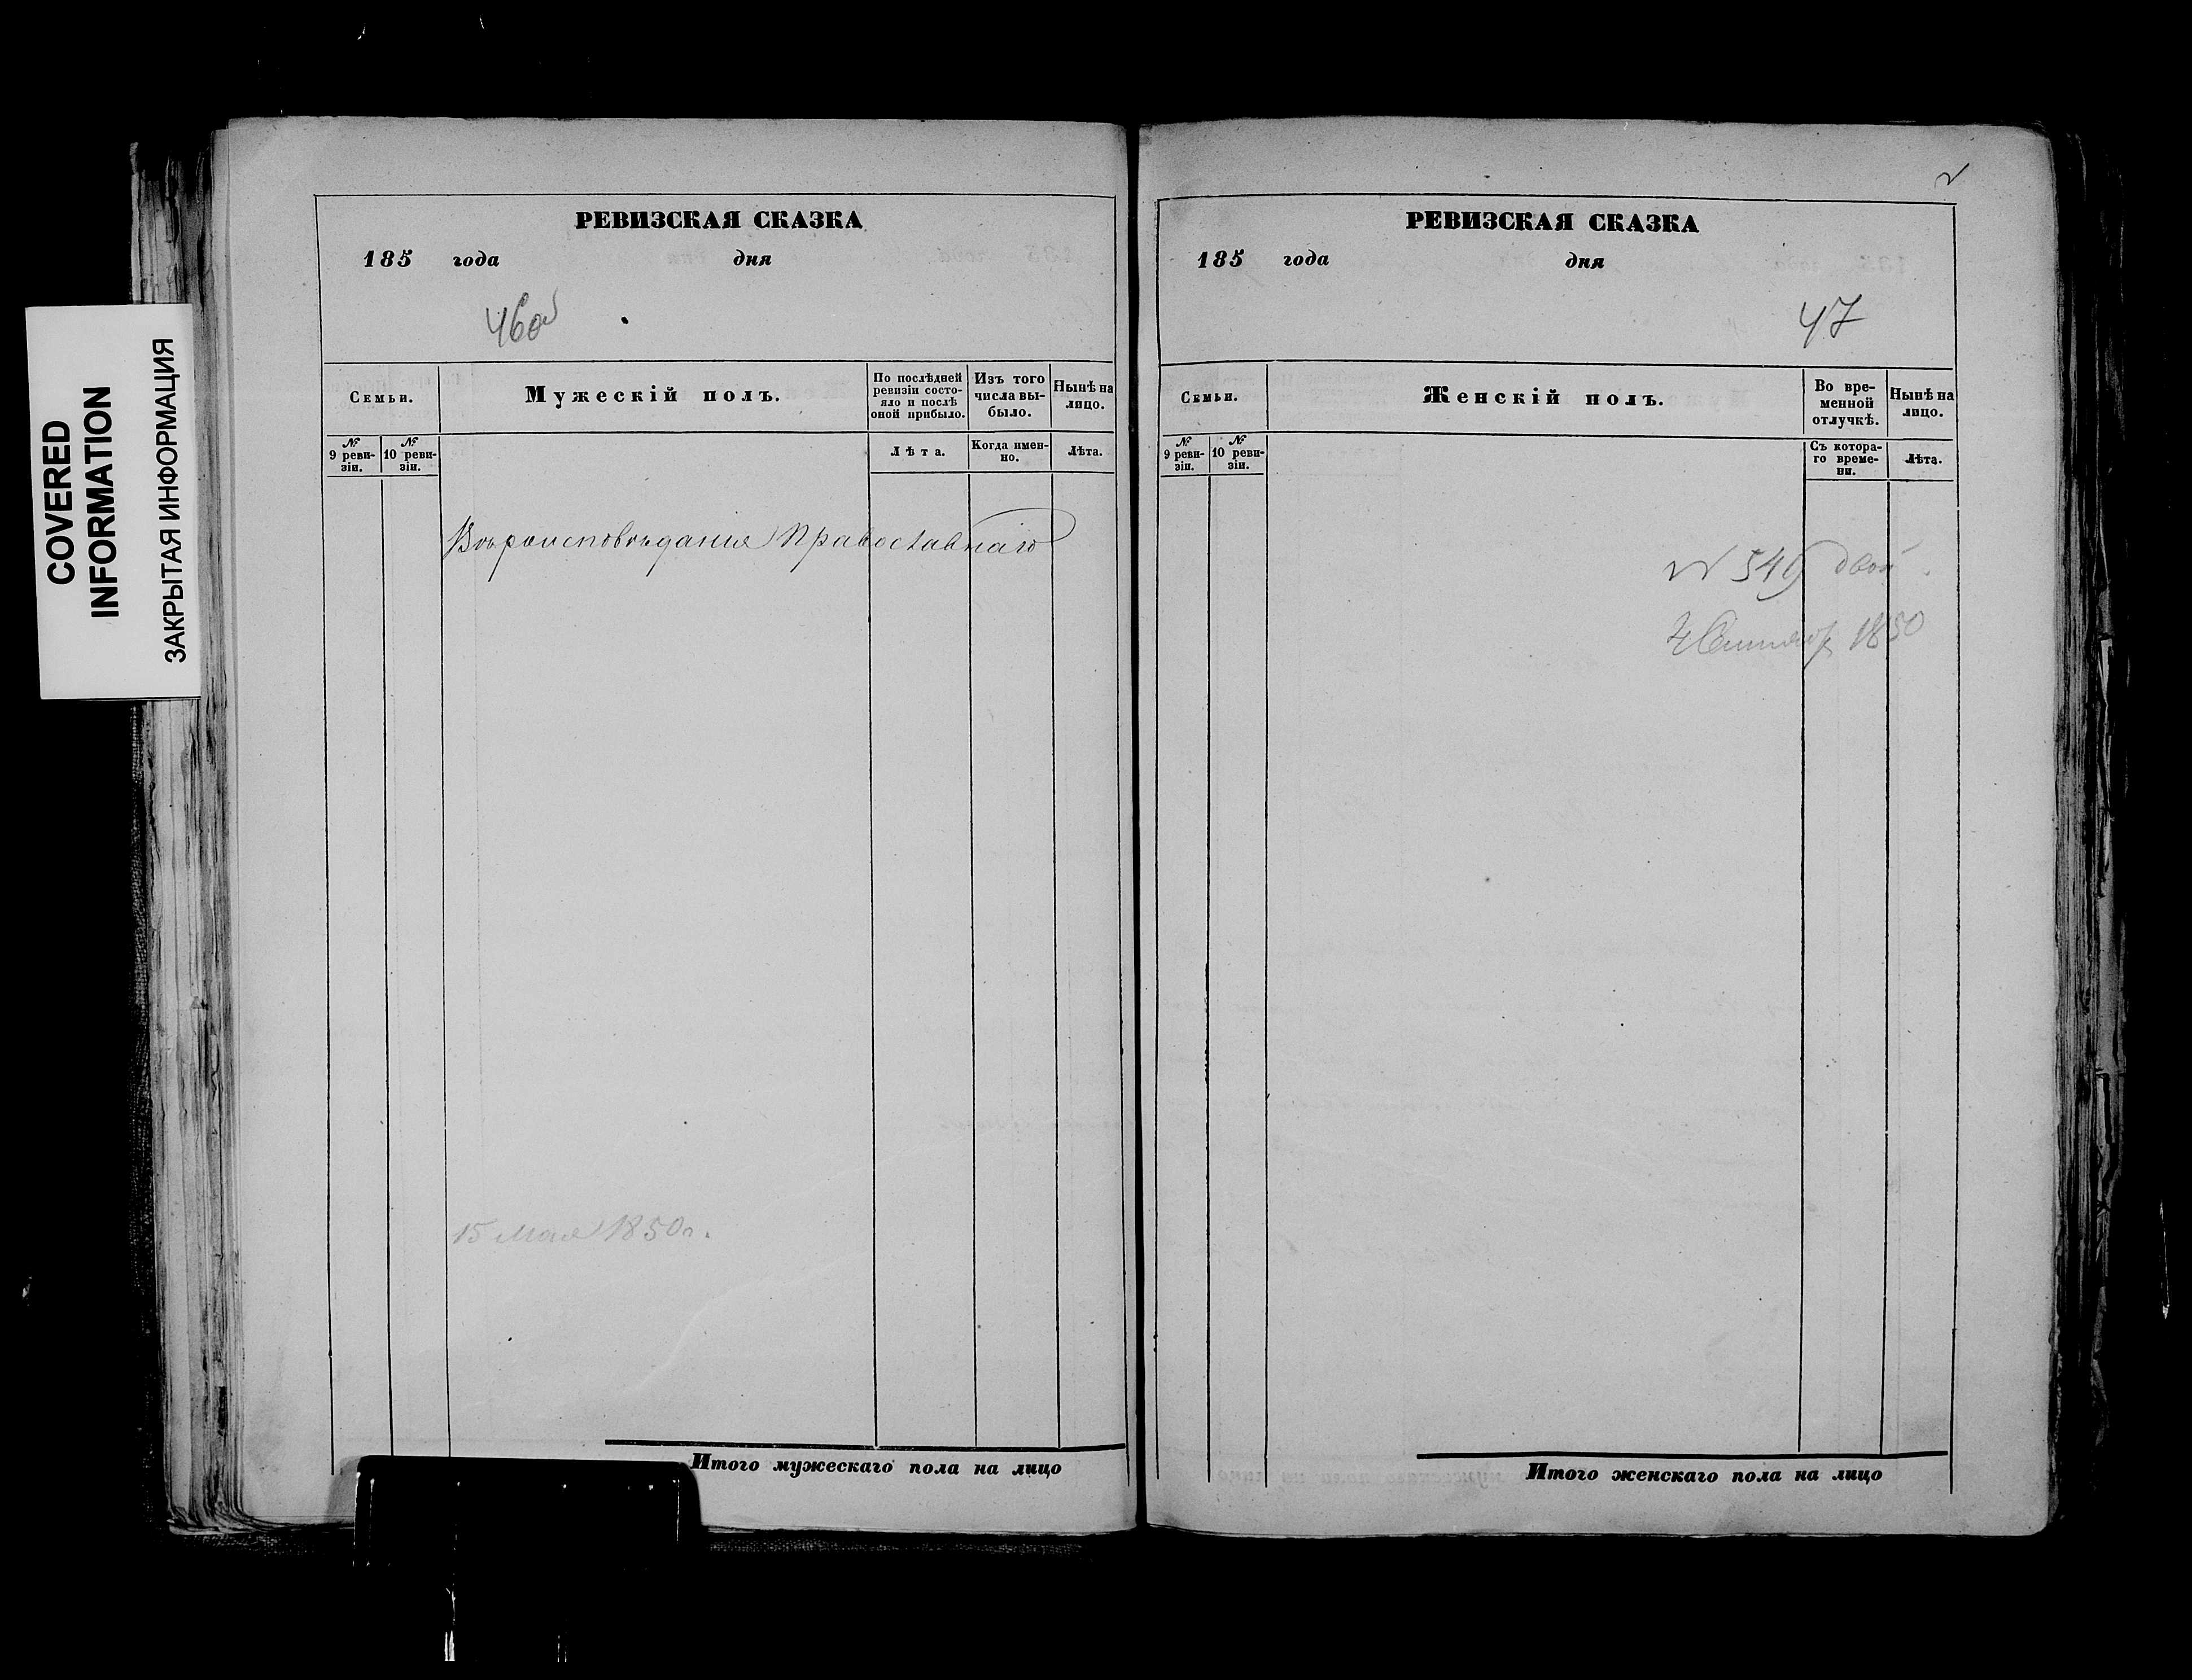 COVERED
INFORMATION
ЗАКРЫТАЯ ИНФОРМАЦИЯ
РЕВИЗСКАЯ СКАЗКА
185 года дня
46об
Семьи.
Мужескій полъ.
По послѣдней
ревизіи состо-
яло и послѣ
оной прибыло.
Изъ того
числа вы-
было.
Нынѣ на
лицо.
№
9 реви-
зіи.
№
10 реви-
зіи.
Лѣта.
Когда имен-
но.
Лѣта.
Вѣроисповѣданія Православнаго
15 Мая 1850 г.
Итого мужескаго пола на лицо
2
РЕВИЗСКАЯ СКАЗКА
185 года дня
47
Семьи.
Женскій полъ.
Во вре-
менной
отлучкѣ.
Нынѣ на
лицо.
№
9 реви-
зіи.
№
10 реви-
зіи.
Съ котора-
го време-
ни.
Лѣта.
№ 549
1850
Итого женскаго пола на лицо